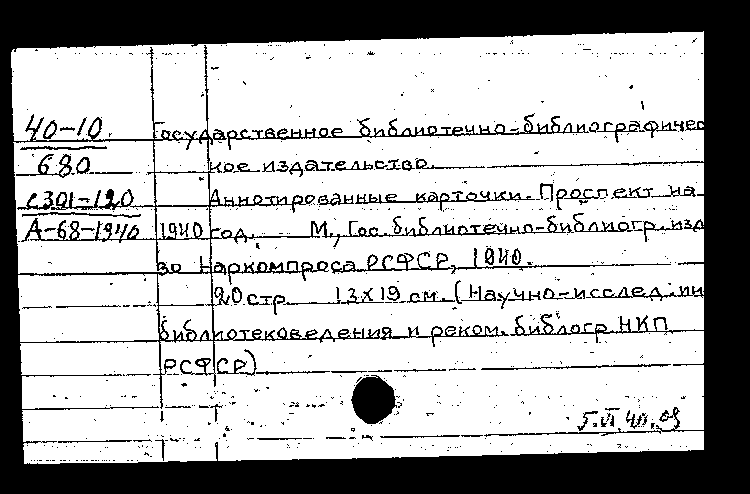 40-10.
680
с301-120
А-68-1940
Государственное библиотечно-библиографичес
кое издательство.
Аннотированные карточки. Проспект на
1940 год. М., Гос. библиотечно-библиогр. изд
во Наркомпроса РСФСР, 1940.
20 стр 13х19 см. (Научно-исслед. ин
библиотековедения и реком. библогр НКП
РСФСР)
5.VI.40.